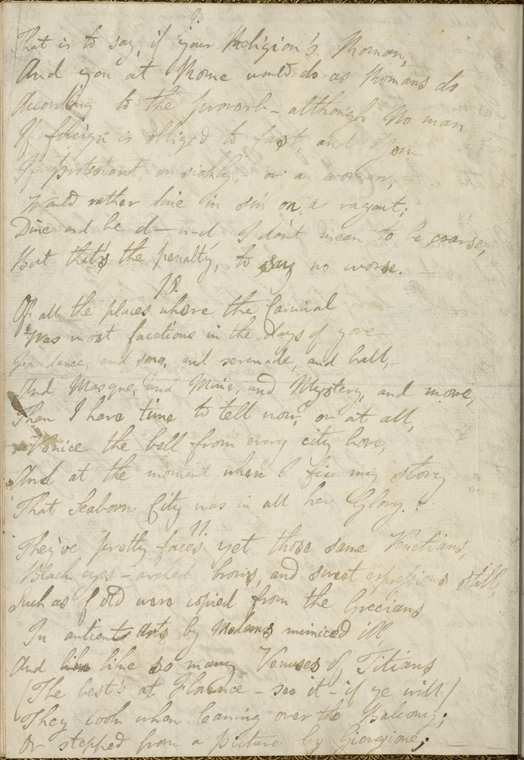 9.
That is to say, if your Religion's Roman,
And you at Rome would do as Romans do
According to the proverb – although No man
If foreign is obliged to fast, and if you
If protestant, or sickly, or a woman,
Would rather dine in sin on a ragout;
Dine and be d—n–d I don't mean to be coarse,
But that's the penalty, to say no worse.
10.
Of all the places where the Carnival
Was most facetious in the days of yore
For dance, and song, and serenade, and ball,
And Masque, and Mime, and Mystery, and more,
Than I have time to tell now, or at all,
Venice the bell from every city bore,
And at the moment when I fix my story
That Seaborn City was in all her Glory.
11.
They've pretty faces yet those same Venetians,
Black eyes – arched brows, and sweet expressions still,
Such as of old were copied from the Grecians
In antient Arts by Moderns mimiced ill
And like so many Venuses of Titians
(The best's at Florence – see it – if ye will)
They look when leaning over the Balcony;
Or stepped from a picture by Giorgione;